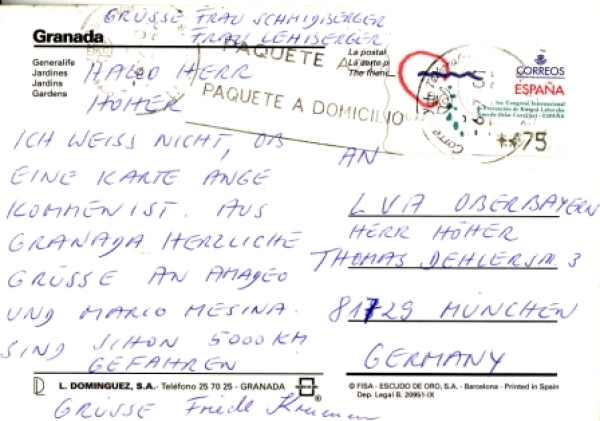 GRÜSSE FRAU SCHMIDBERGER
FRAU LEHISERGER
Granada
Generalife
Jardines
Jardins
Gardens
La postal
PAQUETE A
PAQUETE A DOMICILIO
CORREOS
ESPAÑA
**75
HALLO HERR
HÖHER
ICH WEISS NICHT, OB
EINE KARTE ANGE
KOMMEN IST. AUS
GRANADA HERZLICHE
GRÜSSE AN AMADEO
UND MARIO MESINA.
SIND SCHON 5000 KM
GEFAHREN
AN
LVA OBERBAYERN
HERR HÖHER
THOMAS DEHLERSTR. 3
81729 MÜNCHEN
GERMANY
L. DOMINGUEZ, S.A.- Teléfono 25 70 25 - GRANADA
© FISA - ESCUDO DE ORO, S.A. - Barcelona - Printed in Spain
Dep. Legal B. 20951-IX
GRÜSSE Friedl